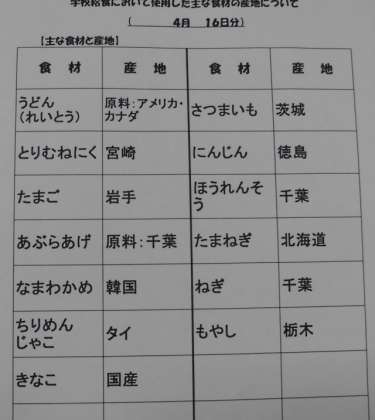 学校給食において使用した主な食材の産地について
( 4月 16日分)
【主な食材と産地】
食 材 産 地 食 材 産 地
うどん
(れいとう) 原料:アメリカ・
カナダ さつまいも 茨城
とりむねにく 宮崎 にんじん 徳島
たまご 岩手 ほうれんそ
う 千葉
あぶらあげ 原料:千葉 たまねぎ 北海道
なまわかめ 韓国 ねぎ 千葉
ちりめん
じゃこ タイ もやし 栃木
きなこ 国産